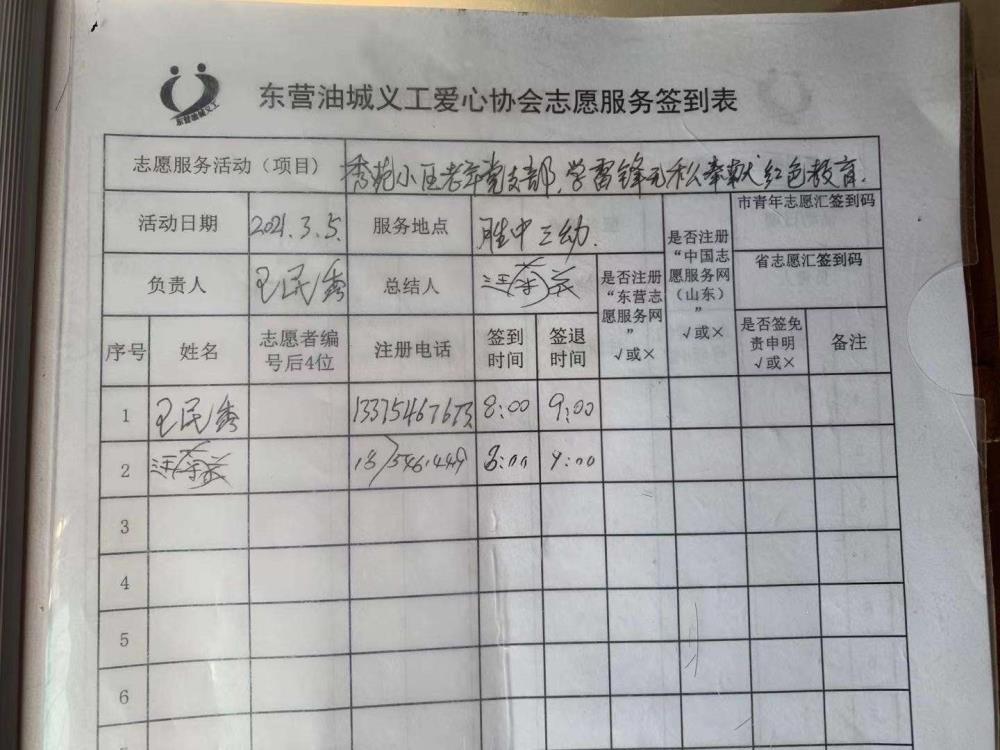 东营油城义工
东营油城义工爱心协会志愿服务签到表
志愿服务活动（项目） 秀苑小区老年党支部，学雷锋无私奉献红色教育.
活动日期 2021.3.5. 服务地点 胜中三幼. 是否注册“中国志愿服务网（山东）” √或× 市青年志愿汇签到码
负责人 王民秀 总结人 是否注册“东营志愿服务网” √或× 省志愿汇签到码
序号 姓名 志愿者编号后4位 注册电话 签到时间 签退时间 是否签免责申明 √或× 备注
1 王民秀 8:00 9:00
2 8:00 9:00
3
4
5
6